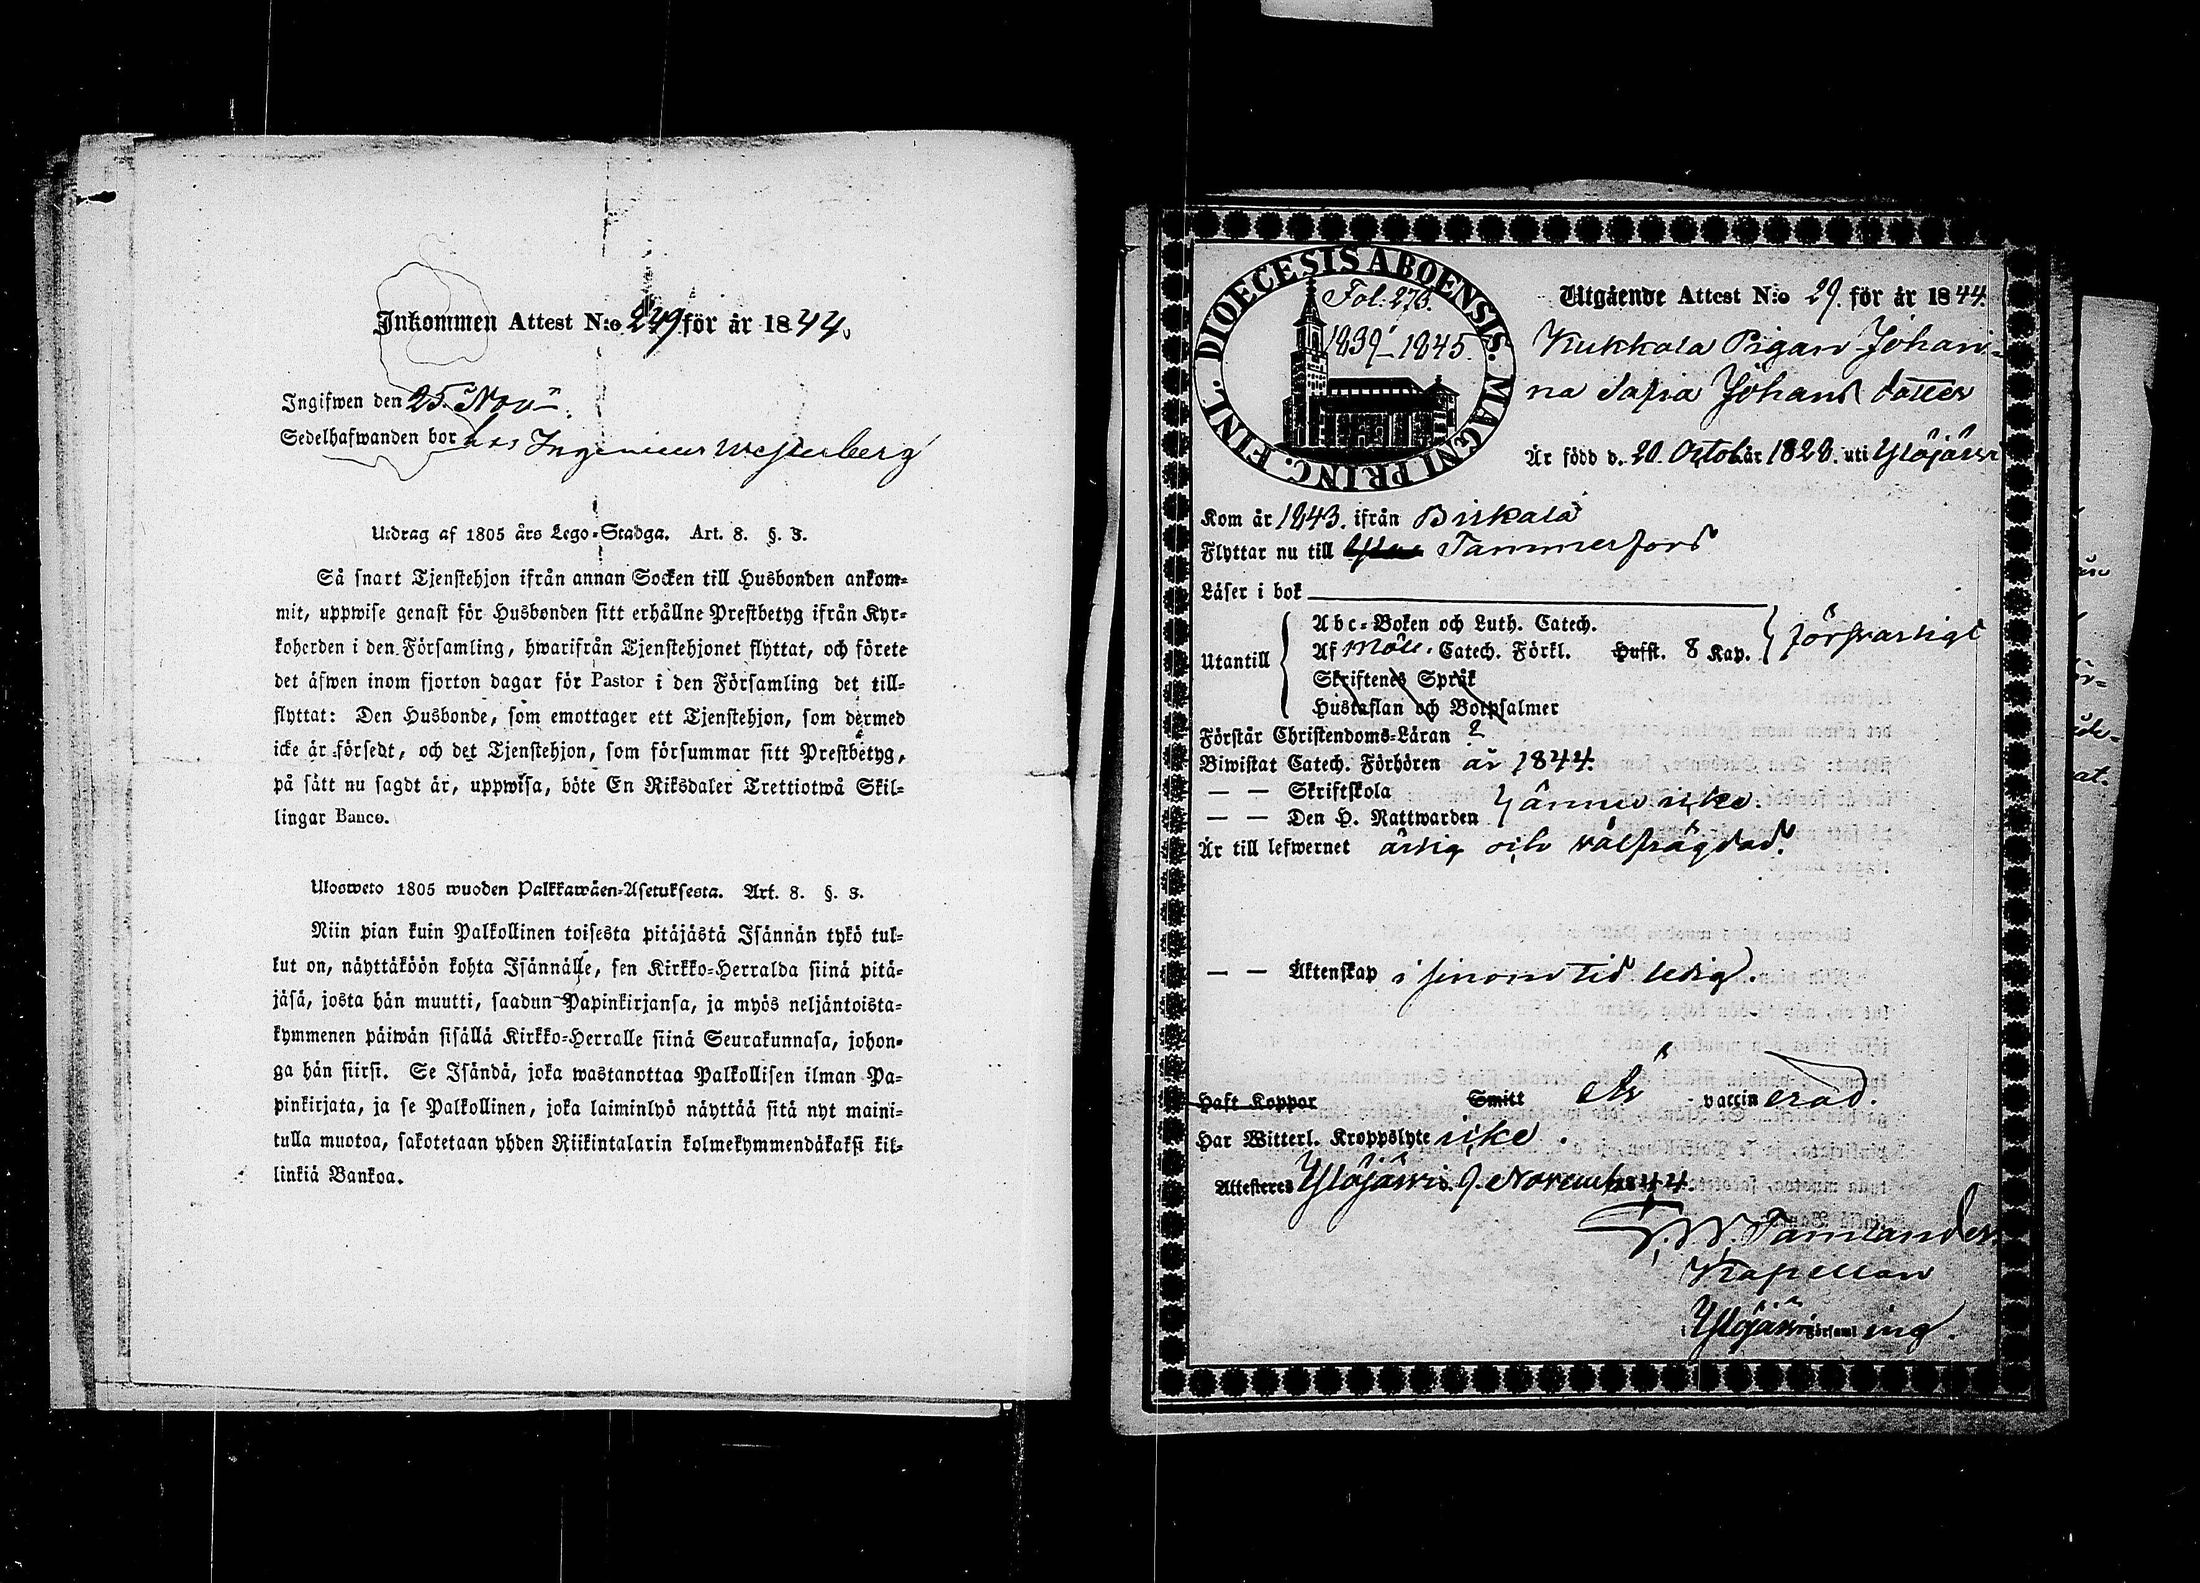 Inkommen Attest N:o 249 för år 1844.
Ingifwen den 25. Nov
Sedelhafwanden bor hos Ingenieur Westerberg
Utdrag af 1805 års Lego-Stadga. Art. 8. §. 3.
Så snart Tjenstehjon ifrån annan Socken till Husbonden ankom-
mit, uppwise genast för Husbonden sitt erhållne Prestbetyg ifrån Kyr-
koherden i den Församling, hwarifrån Tjenstehjonet flyttat, och förete
det äfwen inom fjorton dagar för Pastor i den Församling det till-
flyttat: Den Husbonde, som emottager ett Tjenstehjon, som dermed
icke är försedt, och det Tjenstehjon, som försummar sitt Prestbetyg,
på sätt nu sagdt är, uppwisa, böte En Riksdaler Trettiotwå Skil-
lingar Banco.
Ulosweto 1805 wuoden Palkkawäen-Asetuksesta. Art. 8. §. 3.
Niin pian kuin Palkollinen toisesta pitäjästä Isännän tykö tul-
lut on, näyttäköön kohta Isännälle, sen Kirkko-Herralda siinä pitä-
jäsä, josta hän muutti, saadun Papinkirjansa, ja myös neljäntoista-
kymmenen päiwän sisällä Kirkko-Herralle siinä Seurakunnasa, johon-
ga hän siirsi. Se Isändä, joka wastanottaa Palkollisen ilman Pa-
pinkirjata, ja se Palkollinen, joka laiminlyö näyttää sitä nyt maini-
tulla muotoa, sakotetaan yhden Riikintalarin kolmekymmendäkaksi kil-
linkiä Bankoa.
DIOECESIS ABOENSIS. MAGNI PRINC. FINL.
Fol. 273.
1839-1845.
Utgående Attest N:o 29. för år 1844.
Kukkola Pigan Johan-
na Sofia Johans dotter
Är född d. 20. Octob. år 1828. uti Ylöjärvi
Kom år 1843. ifrån Birkala
Flyttar nu till Tammerfors
Läser i bok
Abc-Boken och Luth. Catech.
Utantill Af Möll. Catech. Förkl. Hufst. 8 Kap. försvarligt
Skriftenes Språk
Hustaflan och Botpsalmer
Förstår Christendoms-Läran
Biwistat Catech. Förhören år 1844.
— — Skriftskola
— — Den H. Nattwarden ännu icke.
Är till lefwernet ärlig och välfrägdad.
— — Äktenskap i sinom tid ledig.
Haft Koppor Smitt Är vaccin erad.
Har Witterl. Kroppslyte icke.
Attesteres Ylöjärvi d. 9. November 1844.
Kapellan
i Ylöjärvi Församl ing.